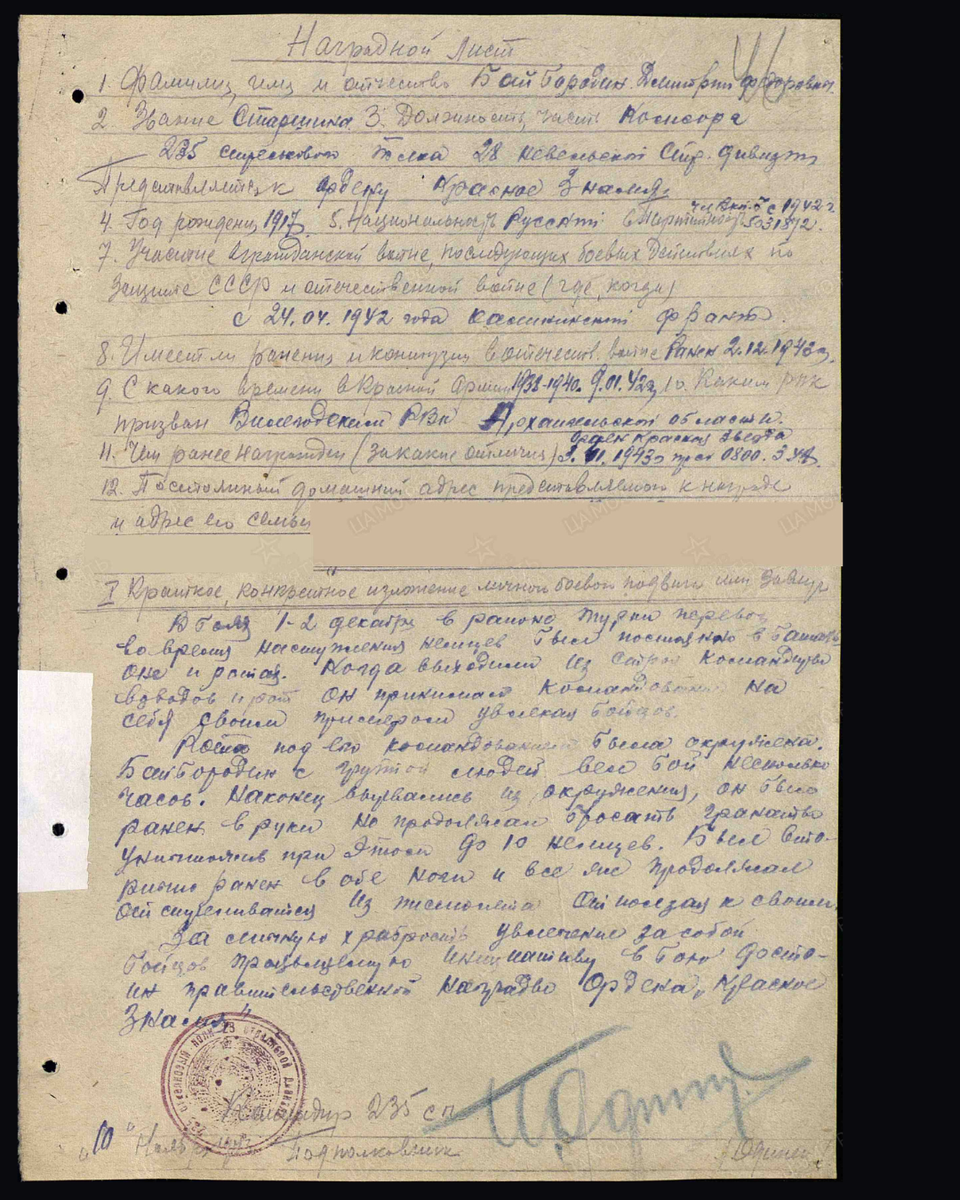 Наградной лист
1. Фамилия, имя и отчество Байбородин Дмитрий Федорович
2. Звание Старшина 3. Должность, часть Комсорг
235 стрелкового Полка 28 Невельской Стр. дивизии
Представляется к ордену Красное Знамя
чл. ВКП(б) с 1942 г.
4. Год рождения 1917. 5. Национальность Русский 6 Партийность
7. Участие в гражданской войне, последующих боевых действиях по
защите СССР и отечественной войне (где, когда)
с 24.04.1942 года Калининский фронт.
8. Имеет ли ранения и контузия в отечеств. войне Ранен 2.12.1943 г.
9. С какого времени в Красной Армии 1938-1940. 9.01.42 г. 10. Каким РВК
призван Вилегодский РВК Архангельской области.
Орден Красная Звезда
11. Чем ранее награжден (за какие отличия) 1943 г. пр. 0800. 3 УА.
12. Постоянный домашний адрес представляемого к награде
и адрес его семьи
I Краткое, конкретное изложение личного боевого подвига или заслуг
В боях 1-2 декабря в районе
во время наступления немцев был постоянно в батальоне
и ротах. Когда выходили из строя командиры
взводов и рот он принимал командование на
себя своим примером увлекая бойцов.
Рота под его командованием была окружена.
Байбородин с группой людей вел бой несколько
часов. Наконец вырвались из окружения, он был
ранен в руки но продолжал бросать гранаты
уничтожив при этом до 10 немцев. Был вто-
рично ранен в обе ноги и все же продолжал
отстреливаться из пистолета отползая к своим.
За личную храбрость увлечение за собой
бойцов инициативу в бою досто-
ин правительственной награды Ордена „Красное
Знамя"
Командир 235 сп
„10" Подполковник